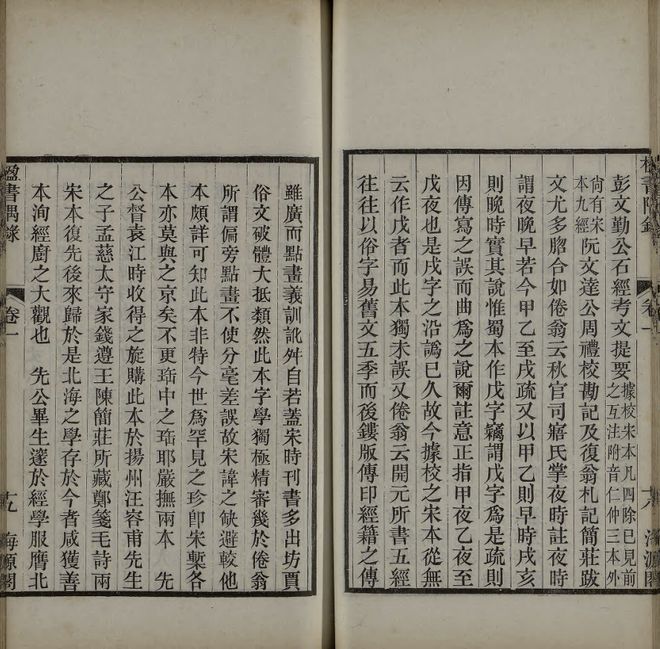 彭文勤公石經考文提要據校宋本凡四除已見前
之互注附音仁仲三本外
尚有宋
本九經阮文達公周禮校勘記及復翁札記簡莊跋
文尤多脗合如倦翁云秋官司寤氏掌夜時註夜時
謂夜晚早若今甲乙至戌疏又以甲乙則早時戌亥
則晚時實其說惟蜀本作戊字竊謂戊字爲是疏則
因傳寫之誤而曲爲之說爾註意正指甲夜乙夜至
戊夜也是戌字之沿譌已久故今據校之宋本從無
云作戊者而此本獨未誤又倦翁云開元所書五經
往往以俗字易舊文五季而後鏤版傳印經籍之傳
雖廣而點畫義訓訛舛自若蓋宋時刊書多出坊賈
俗文破體大抵類然此本字學獨極精審幾於倦翁
所謂偏旁點畫不使分毫差誤故宋諱之缺避較他
本頗詳可知此本非特今世爲罕見之珍卽宋槧各
本亦莫與之京矣不更珤中之珤耶嚴撫兩本 先
公督袁江時收得之旋購此本於揚州汪容甫先生
之子孟慈太守家錢遵王陳簡莊所藏鄭箋毛詩兩
宋本復先後來歸於是北海之學存於今者咸獲善
本洵經廚之大觀也 先公畢生邃於經學服膺北
楹書隅錄 卷一 十九 海源閣